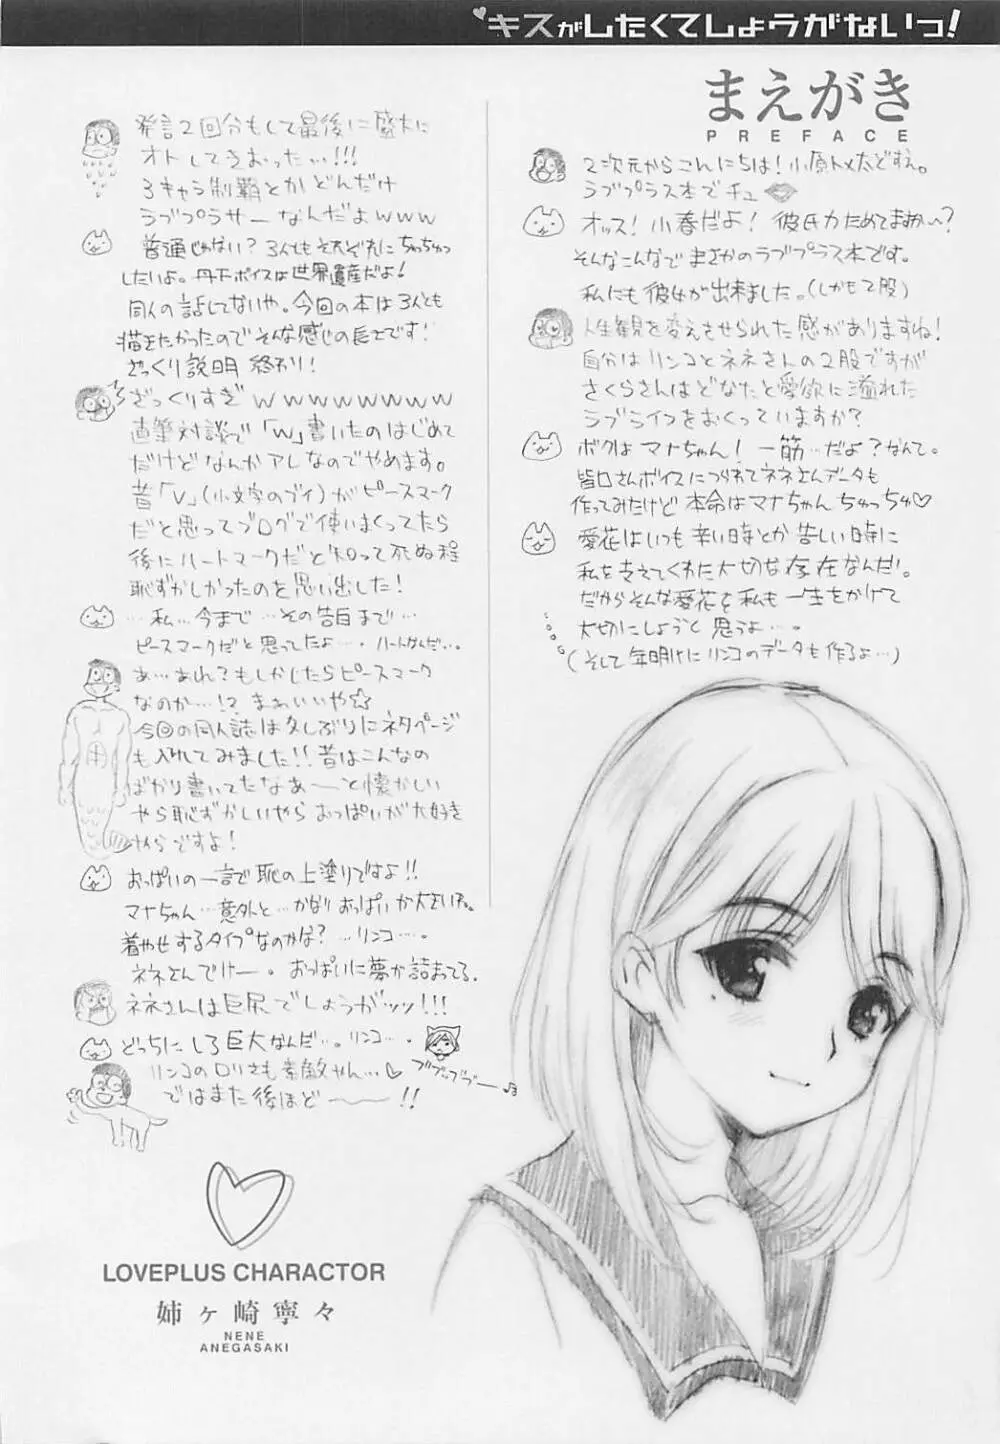 キスがしたくてしょうがないっ!
まえがき
PREFACE
2次元からこんにちは!小原トメ太どすえ。
ラブプラス本でチュ
オッス!小春だよ!彼氏力ためてますか〜?
そんなこんなでまさかのラブプラス本です。
私にも彼女が出来ました。(しかも2股)
人生観を変えさせられた感がありますね!
自分はリンコとネネさんの2股ですが
さくらさんはどなたと愛欲に溢れた
ラブライフをおくっていますか?
ボクはマナちゃん!一筋…だよ?なんて。
皆口さんボイスにつられてネネさんデータも
作ってみたけど本命はマナちゃんちゅっちゅ♡
愛花はいつも辛い時とか苦しい時に
私を支えてくれた大切な存在なんだ!。
だからそんな愛花を私も一生をかけて
大切にしようと思うよ…。
(そして年明けにリンコのデータも作るよ…)
発言2回分もして最後に盛大に
オトしてきおったぃ!!!
3キャラ制覇とかどんだけ
ラブプラサーなんだよwww
普通じゃない?3人ともそれぞれにちゅっちゅっ
したいよ。丹下ボイスは世界遺産だよ!
同人の話してないや。今回の本は3人とも
描きたかったのでそんな感じの長さです!
ざっくり説明終わり!
ざっくりすぎwwwwwwww
直筆対談で「w」書いたのはじめて
だけどなんかアレなのでやめます。
昔「v」(小文字のブイ)がピースマーク
だと思ってブログで使いまくってたら
後にハートマークだと知って死ぬ程
恥ずかしかったのを思い出した!
…私…今まで…その告白まで…
ピースマークだと思ってたよ…。ハートなんだ…。
あ…あれ?もしかしたらピースマーク
なのか…!?まぁいいや☆
今回の同人誌は久しぶりにネタページ
も入れてみました!!昔はこんなの
ばかり書いてたなあーと懐かしい
やら恥ずかしいやらおっぱいが大好き
やらですよ!
おっぱいの一言で恥の上塗りですよ!!
マナちゃん…意外と…かなりおっぱいが大きいね。
着やせするタイプなのかな?…リンコ…。
ネネさんでけー。おっぱいに夢が詰まってる。
ネネさんは巨尻でしょうがッッ!!!
どっちにしろ巨大なんだ…。リンコ…。
リンコのロリさも素敵やん…♡
ではまた後ほど〜!!
LOVEPLUS CHARACTOR
姉ヶ崎寧々
NENE
ANEGASAKI